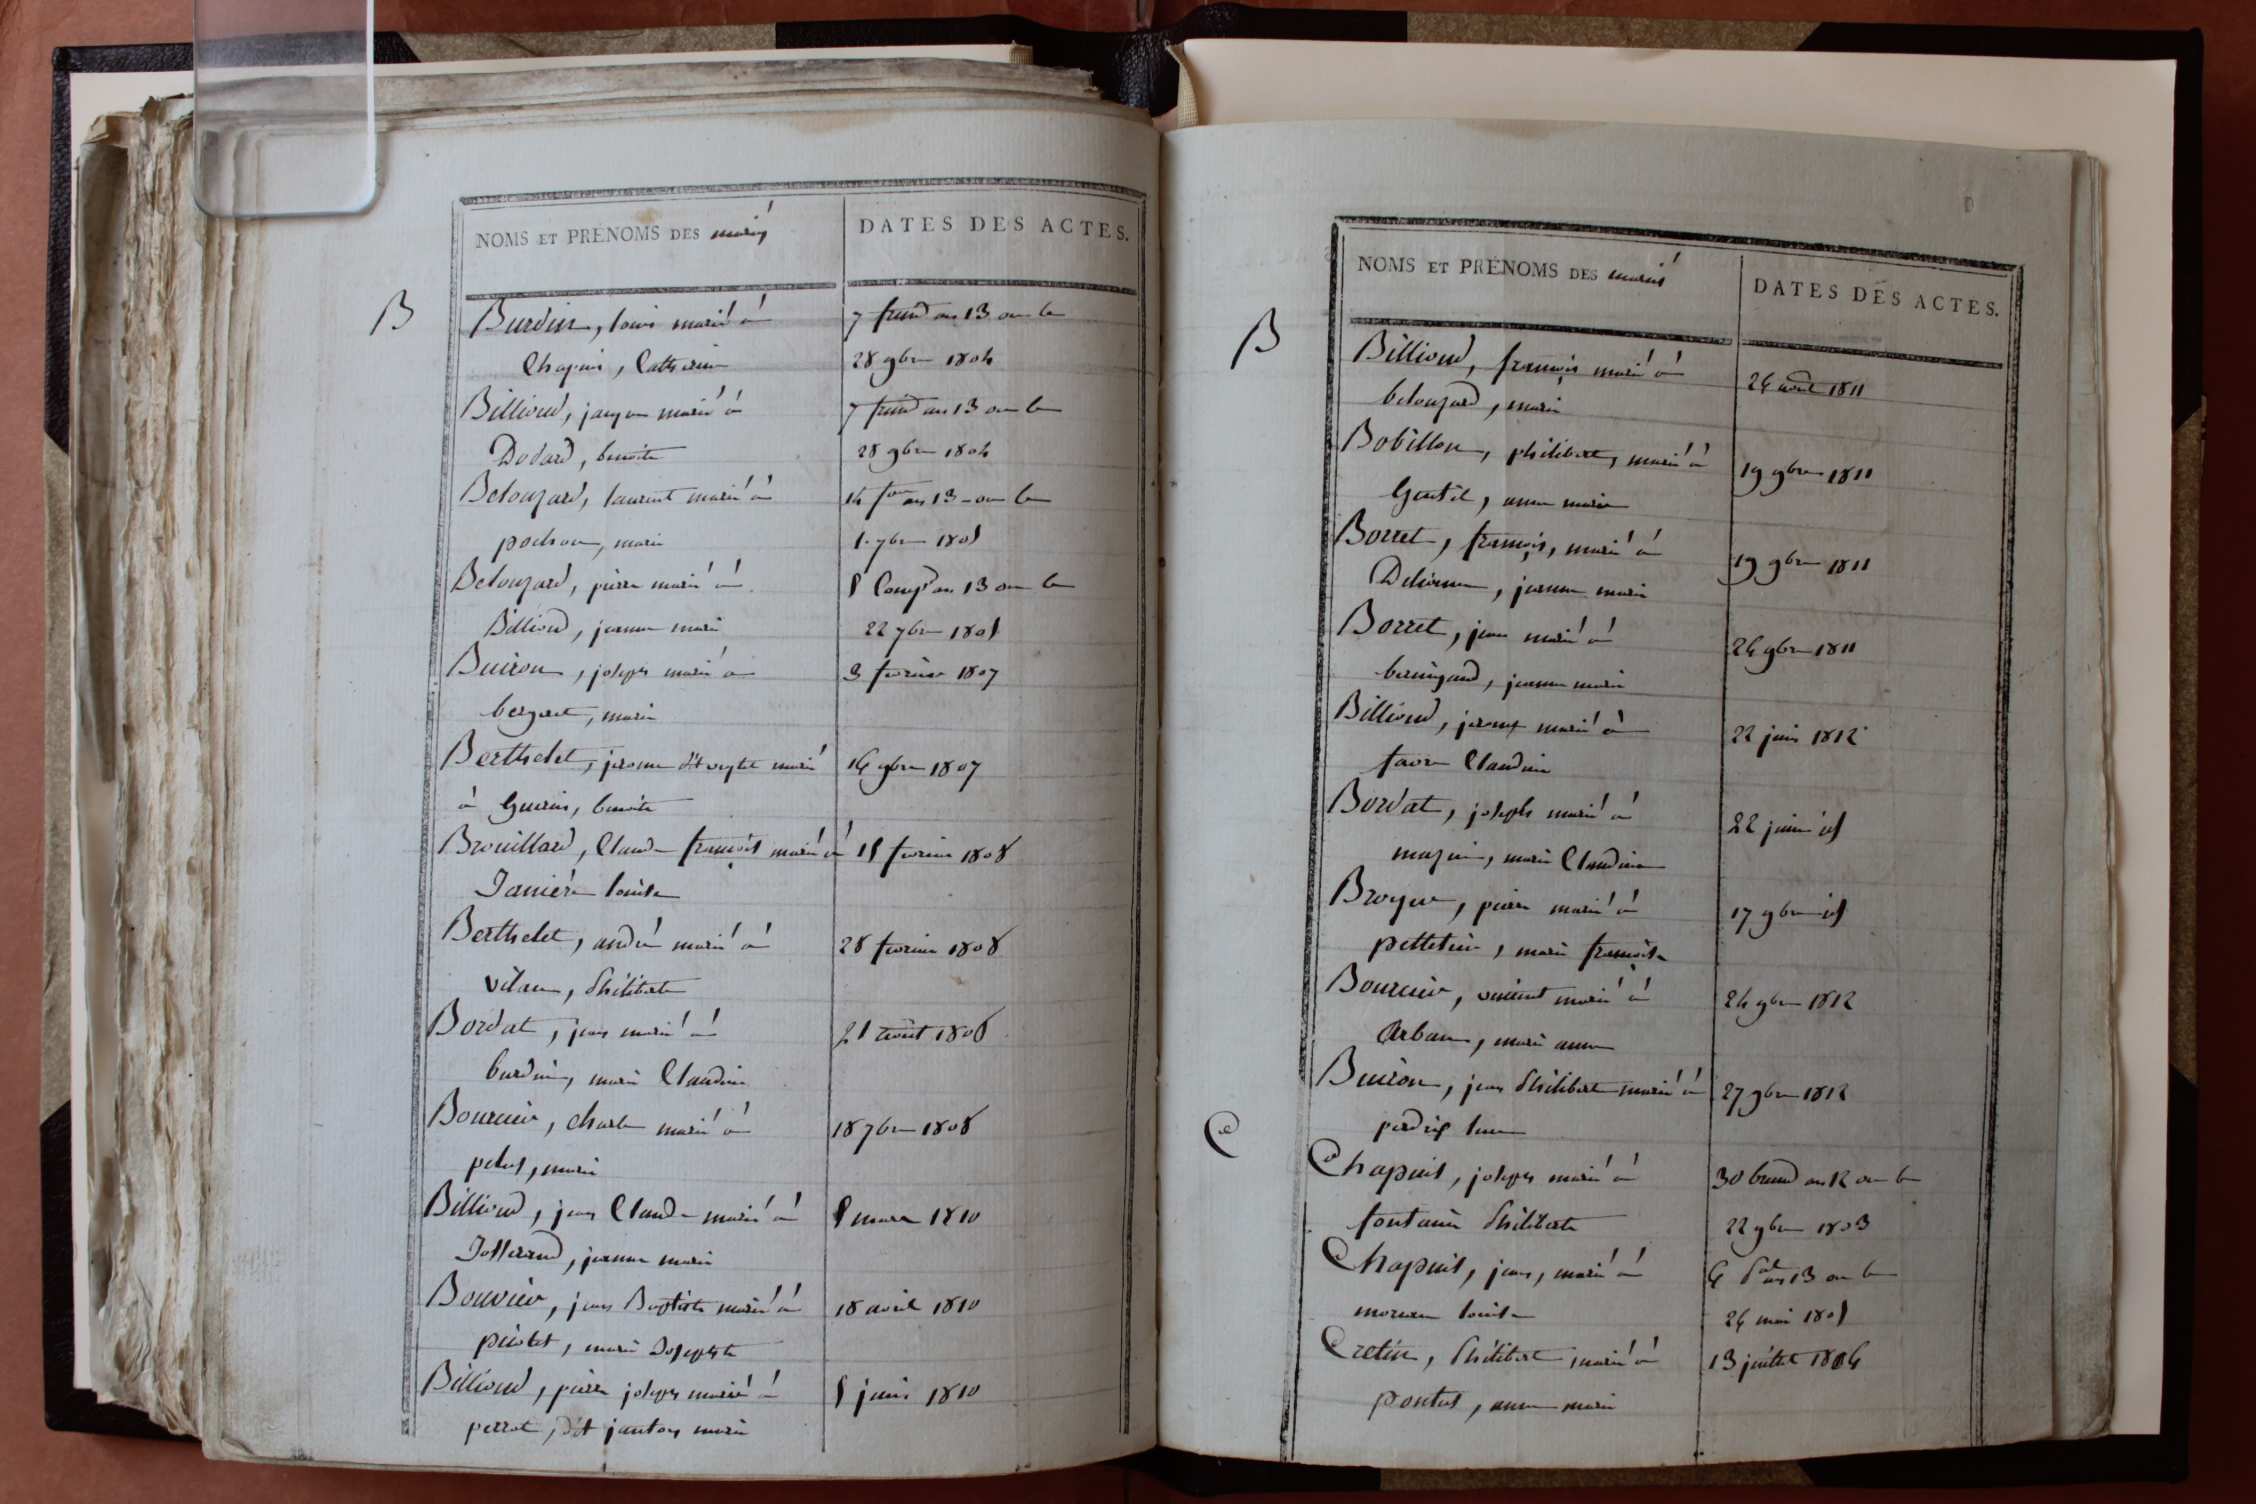 NOMS ET PRÉNOMS DES mariés
DATES DES ACTES.
B
Burdin, louis marié à
7 frim an 13 ou le
Chapuis, Catherine
28 9bre 1804
Billioud, jacques marié à
7 frim an 13 ou le
Dodard, benoite
28 9bre 1804
Belouzard, laurent marié à
14 an 13 - ou le
pochon, marie
1. 7bre 1805
Belouzard, pierre marié à
5 Comp an 13 ou le
Billioud, jeanne marie
22 7bre 1805
Buiron, joseph marié à
3 fevrier 1807
bergeret, marie
Berthelet, jerome marié
16 9bre 1807
à Guerin, benoite
Brouillard, Claude françois marié à
15 fevrier 1808
Janiére louise
Berthelet, andré marié à
28 fevrier 1808
vilan, Philiberte
Bordat, jean marié à
21 août 1808
burdin, marie Claudine
Bourcier, charle marié à
18 7bre 1808
marie
Billioud, jean Claude marié à
5 mars 1810
Josserand, jeanne marie
Bouvier, jean Baptiste marié à
18 avril 1810
marie Josephte
Billioud, pierre joseph marié à
5 juin 1810
perrot, dit janton marie
NOMS ET PRÉNOMS DES mariés
DATES DES ACTES.
B
Billioud, françois marié à
26 août 1811
belouzard, marie
Bobillon, philibert, marié à
19 9bre 1811
Gentil, anne marie
Borret, françois, marié à
19 9bre 1811
Delienne, jeanne marie
Borret, jean marié à
26 9bre 1811
beringard, jeanne marie
Billioud, jerome marié à
22 juin 1812
favre Claudine
Bordat, joseph marié à
22 juin id
mazuir, marie Claudine
Broyer, pierre marié à
17 9bre id
pelletier, marie françoise
Bourcier, vincent marié à
24 9bre 1812
Arban, marie anne
Buiron, jean Philibert marié à
27 9bre 1812
perdrix
C
Chapuis, joseph marié à
30 brum an 12 ou le
fontaine Philiberte
22 9bre 1803
Chapuis, jean, marié à
6 an 13 ou le
moreau louise
26 mai 1805
Cretin, Philibert marié à
13 juillet 1806
pontus, anne marie